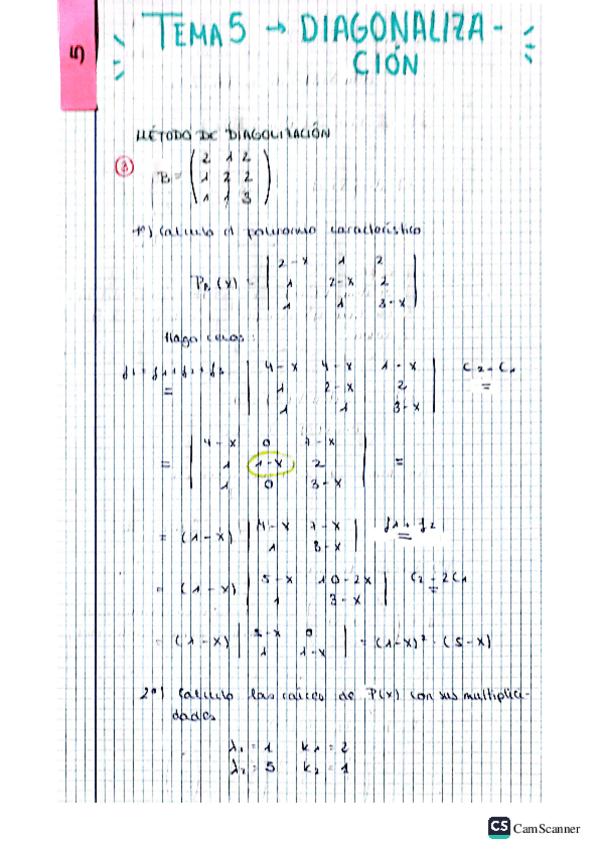 5
TEMA 5 → DIAGONALIZA-
CIÓN
MÉTODO DE DIAGOLIZACIÓN
③
B = ( 2 1 2
1 2 2
1 1 3 )
1º) Calculo el polinomio característico
P_B (x) = | 2-x 1 2
1 2-x 2
1 1 3-x |
Hago ceros:
| 4-x 4-x 7-x | C2-C1
= 1 2-x 2 =
1 1 3-x
| 4-x 0 7-x |
= 1 1-x 2 =
1 0 3-x
= (1-x) | 4-x 7-x | f1+f2
1 3-x =
= (1-x) | 5-x 10-2x | C2-2C1
1 3-x =
= (1-x) | 5-x 0 | = (1-x)² · (5-x)
1 1-x
2º) Calculo las raíces de P(x) con sus multiplici-
dades
λ1 = 1 k1 = 2
λ2 = 5 k2 = 1
CS CamScanner